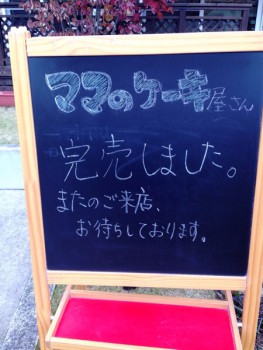 ママのケーキ屋さん
完売しました。
またのご来店、
お待ちしております。